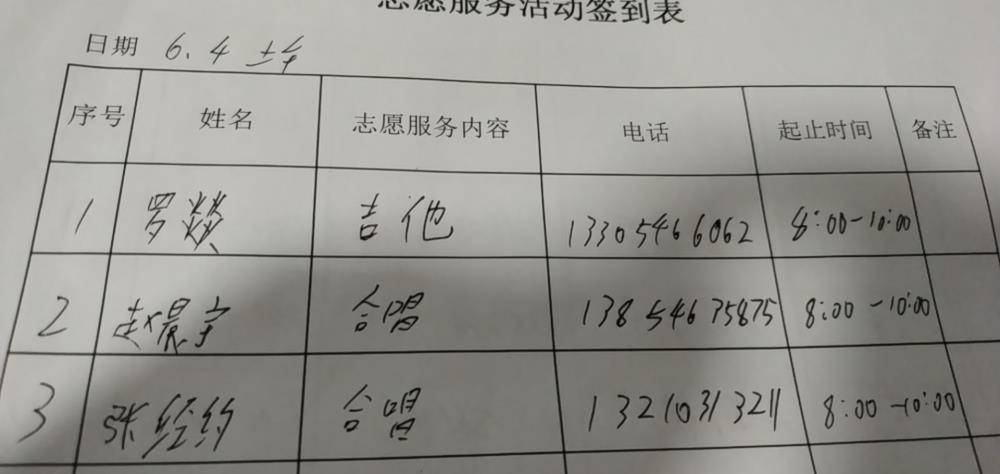 志愿服务活动签到表
日期 6.4 上午
序号 姓名 志愿服务内容 电话 起止时间 备注
1 罗燚 吉他 13305466062 8:00-10:00
2 赵晨宇 合唱 13854635875 8:00-10:00
3 张经纬 合唱 13210313211 8:00-10:00